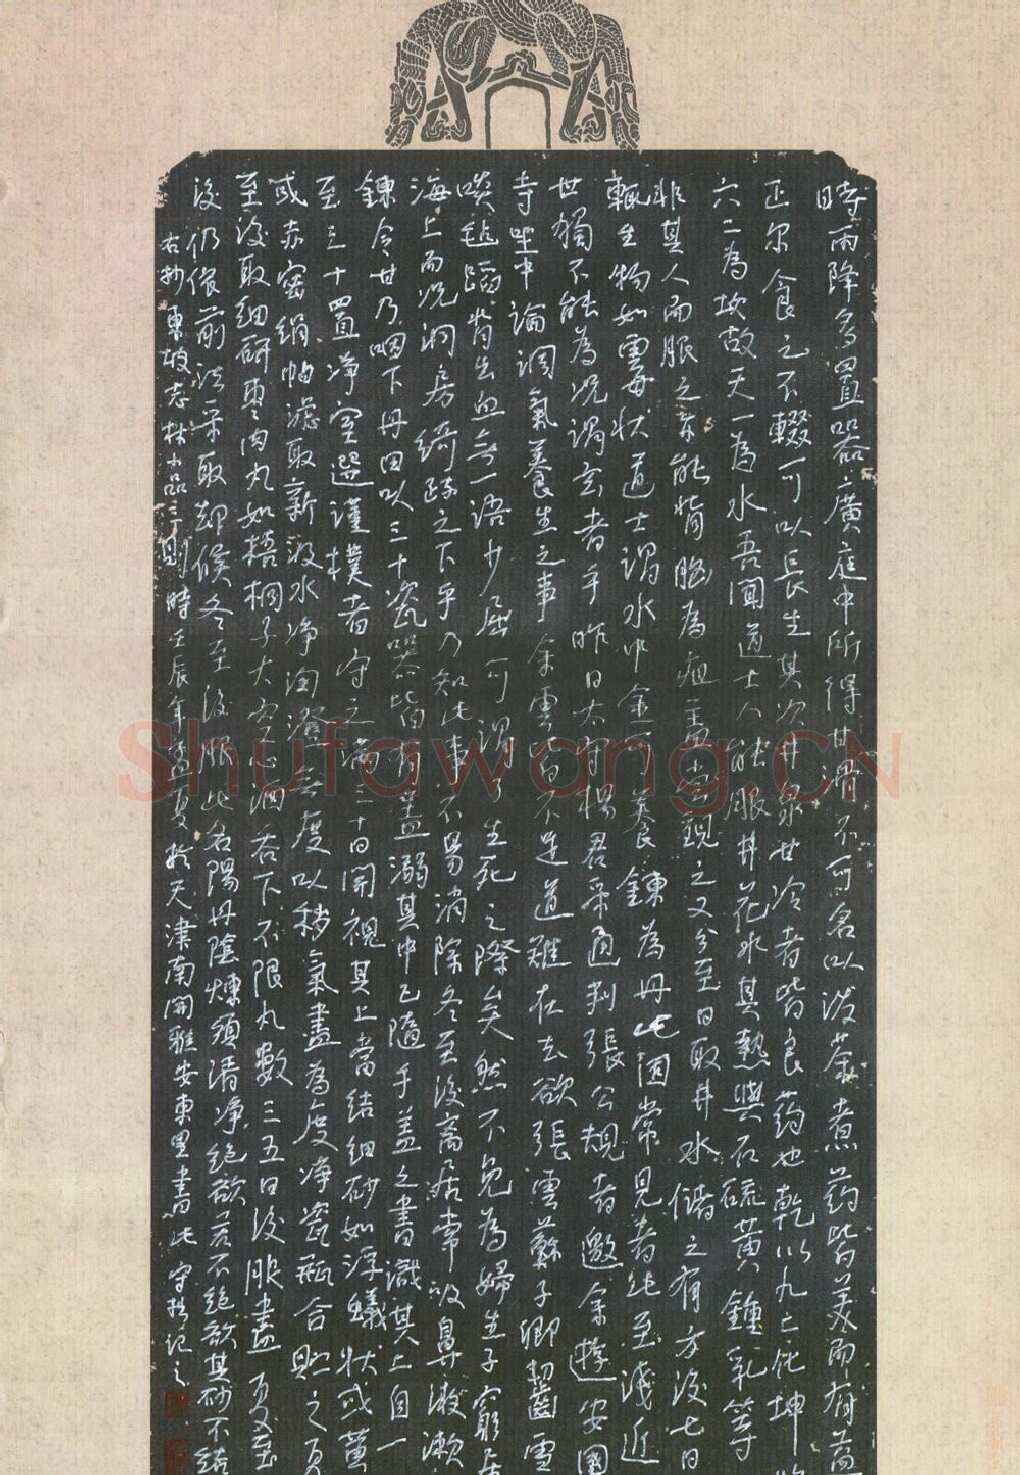 時雨降多置器廣庭中所得甘滑不可名以潑茶煮药皆美而有益
正尔食之不輟可以長生其次井泉甘冷者皆良药也乾以九二化坤
六二為坎故天一為水吾聞道士人能服井花水其熱與石硫黄鐘乳等
非其人而服之亦能背脳為疽盖嘗觀之又分至日取井水儲之有方後七日
輒生物如雲母状道士謂水中金可養鍊為丹此固常見者此至淺近
世獨不能為況謂玄者乎昨日太守楊君采通判張公規者邀余遊安國
寺坐中論調氣養生之事余雲皆不足道難在去欲張雲蘇子卿齧雪
啖毡蹈背出血無一語少屈可謂了生死之際矣然不免為婦生子窮居
海上而況洞房綺疎之下乎乃知此事不易消除冬至後齋居常吸鼻液漱
鍊令甘乃咽下丹田以三十瓷器皆有盖溺其中已隨手盖之書識其上自一
至三十置净室選谨樸者守之滿三十日開視其上當結細砂如浮蟻状或黄
或赤密絹帕濾取新汲水净淘澄無度以秽氣盡為度净瓷瓶合貯之夏
至後取細研棗肉丸如梧桐子大空心酒吞下不限丸數三五日後服盡夏至
後仍依前法采取却候冬至後服此名陽丹陰煉須清净絕欲若不絕欲其砂不結
右抄東坡志林小品三則時壬辰年孟夏於天津南開雅安東里書此守拙记之
Shufawang.CN